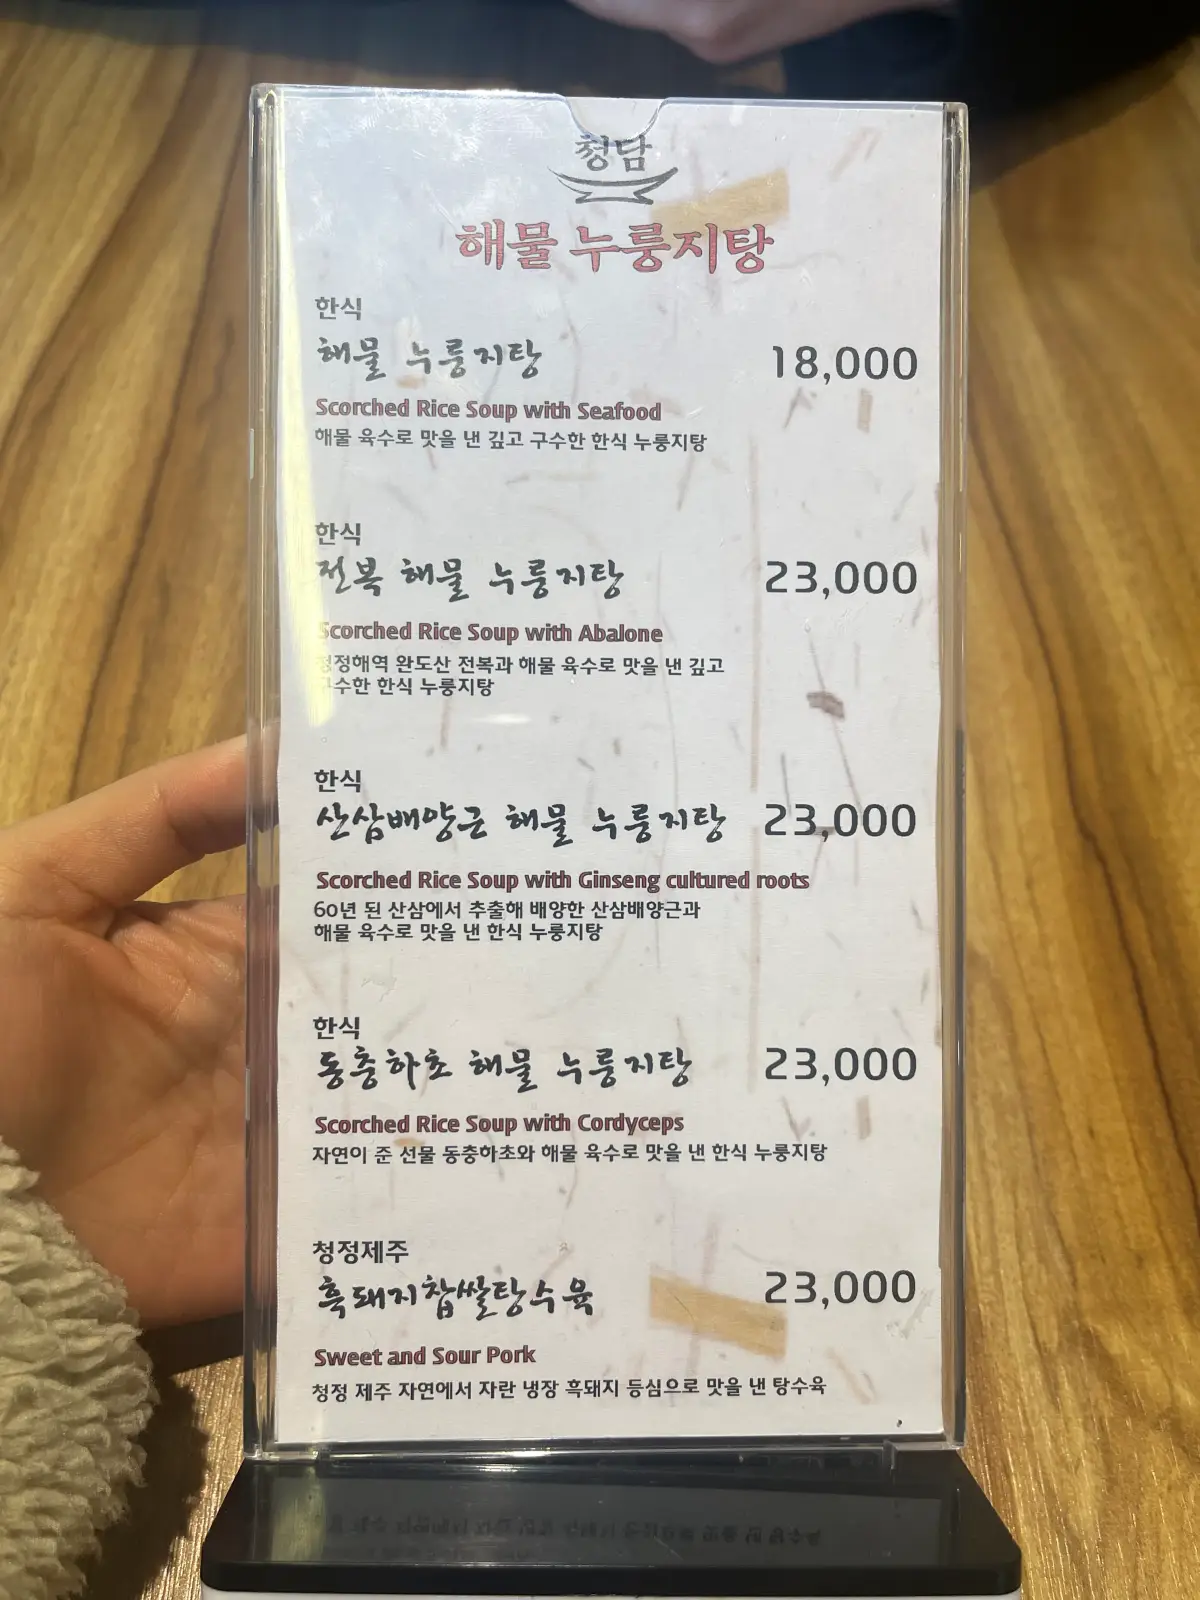 청담
해물 누룽지탕
한식
해물 누룽지탕 18,000
Scorched Rice Soup with Seafood
해물 육수로 맛을 낸 깊고 구수한 한식 누룽지탕
한식
전복 해물 누룽지탕 23,000
Scorched Rice Soup with Abalone
청정해역 완도산 전복과 해물 육수로 맛을 낸 깊고
구수한 한식 누룽지탕
한식
산삼배양근 해물 누룽지탕 23,000
Scorched Rice Soup with Ginseng cultured roots
60년 된 산삼에서 추출해 배양한 산삼배양근과
해물 육수로 맛을 낸 한식 누룽지탕
한식
동충하초 해물 누룽지탕 23,000
Scorched Rice Soup with Cordyceps
자연이 준 선물 동충하초와 해물 육수로 맛을 낸 한식 누룽지탕
청정제주
흑돼지찹쌀탕수육 23,000
Sweet and Sour Pork
청정 제주 자연에서 자란 냉장 흑돼지 등심으로 맛을 낸 탕수육